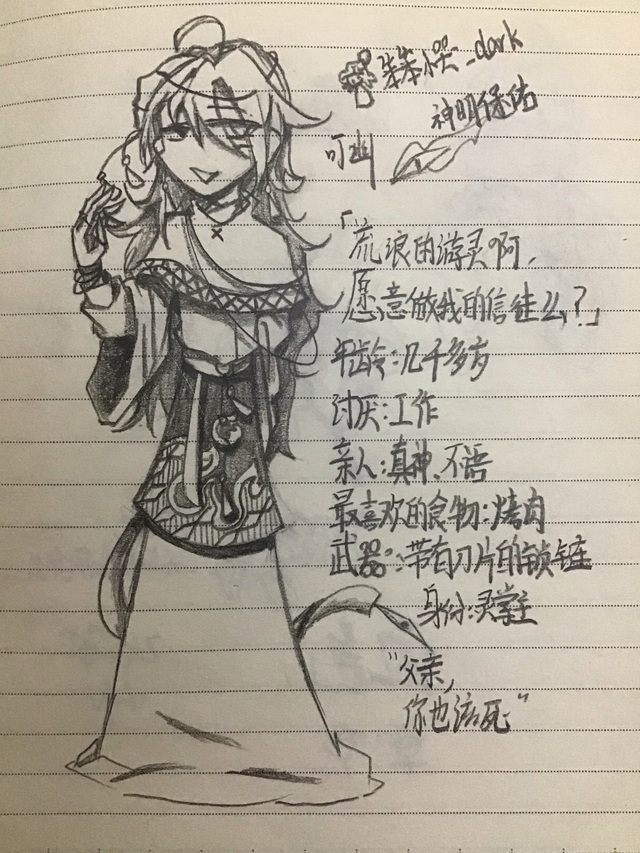 笨笨小哭_dark
神明保佑
叮幽
「流浪的游灵啊,
愿意做我的信徒么?」
年龄:几千多岁
讨厌:工作
亲人:真神、不语
最喜欢的食物:烤肉
武器:带有刀片的锁链
身份:灵掌主
"父亲,
你也该死"